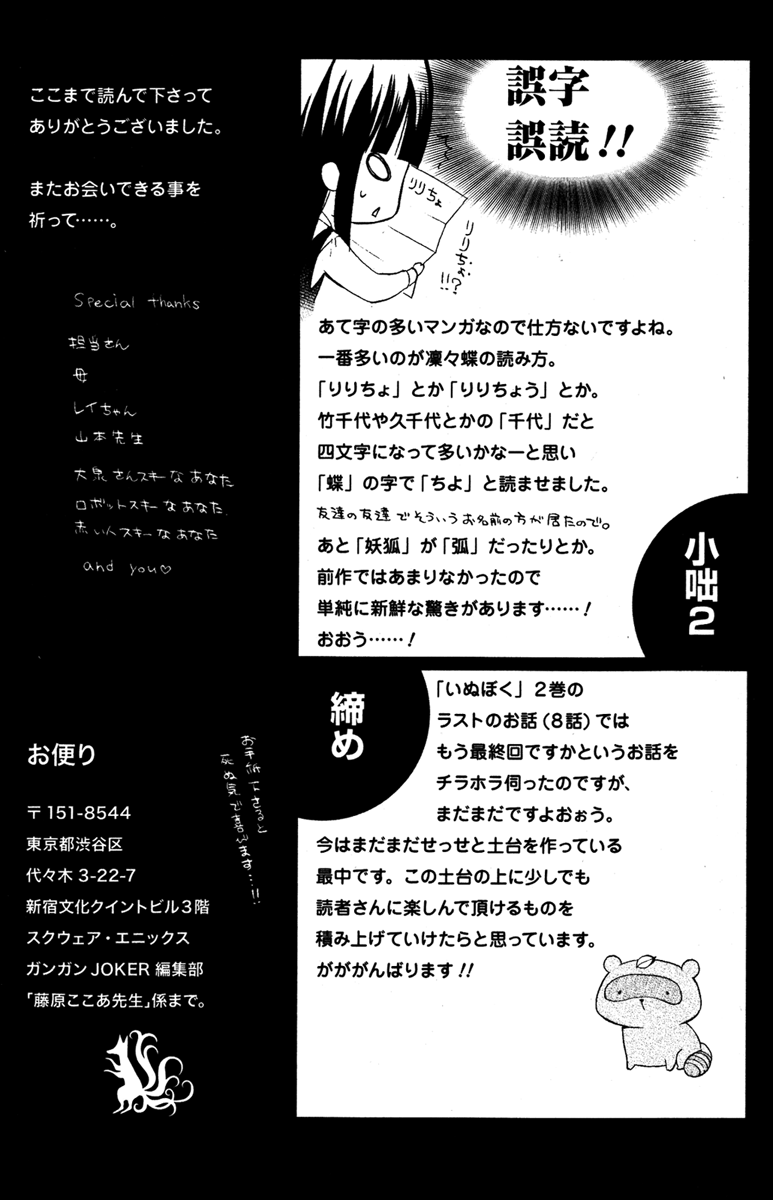 誤字
誤読!!
りりちょ
りりぢょ?
!!?
小咄2
あて字の多いマンガなので仕方ないですよね。
一番多いのが凜々蝶の読み方。
「りりちょ」とか「りりちょう」とか。
竹千代や久千代とかの「千代」だと
四文字になって多いかなーと思い
「蝶」の字で「ちよ」と読ませました。
友達の友達でそういうお名前の方が居たので。
あと「妖狐」が「弧」だったりとか。
前作ではあまりなかったので
単純に新鮮な驚きがあります……!
おおう……!
締め
「いぬぼく」2巻の
ラストのお話(8話)では
もう最終回ですかというお話を
チラホラ伺ったのですが、
まだまだですよおぉう。
今はまだまだせっせと土台を作っている
最中です。この土台の上に少しでも
読者さんに楽しんで頂けるものを
積み上げていけたらと思っています。
がががんばります!!
ここまで読んで下さって
ありがとうございました。
またお会いできる事を
祈って……。
Special thanks
担当さん
母
レイちゃん
山本先生
大泉さんスキーなあなた
ロボットスキーなあなた
赤い人スキーなあなた
and you♡
お便り
お手紙下さると
死ぬ気で喜びます…!!
〒151-8544
東京都渋谷区
代々木 3-22-7
新宿文化クイントビル3階
スクウェア・エニックス
ガンガン JOKER 編集部
「藤原ここあ先生」係まで。